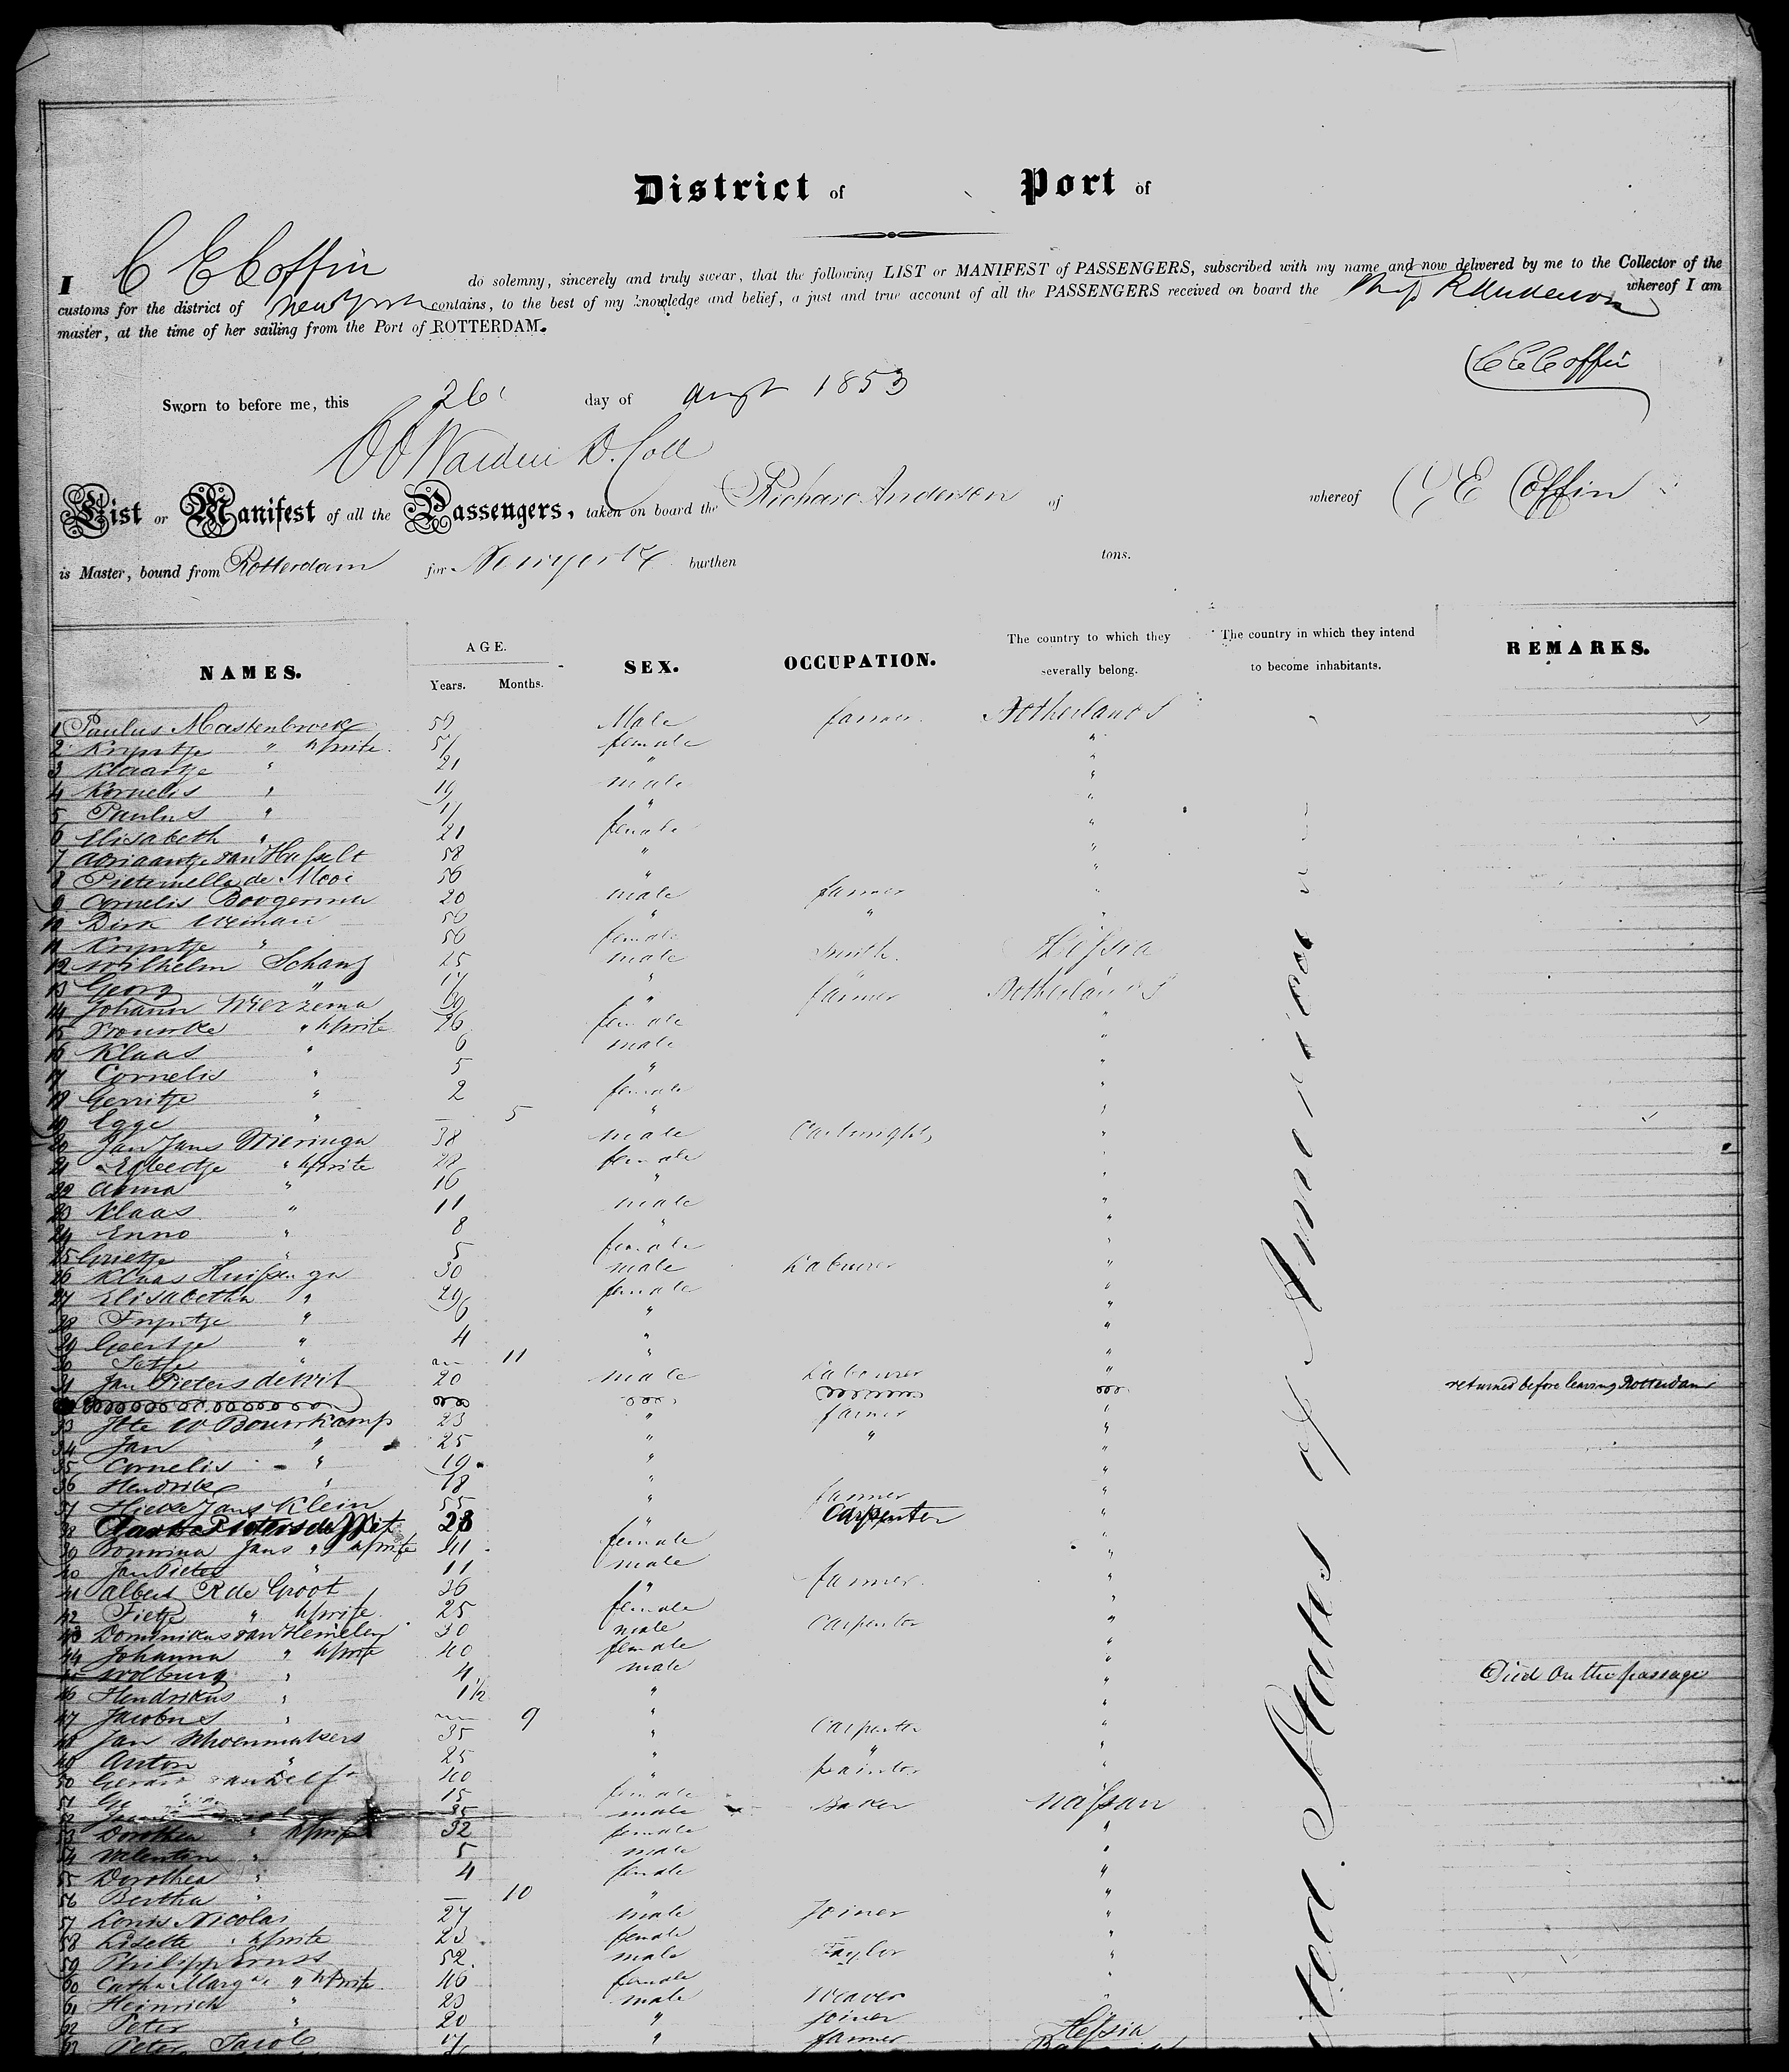 District of Port of
I C E Coffin do solemny, sincerely and truly swear, that the following LIST or MANIFEST of PASSENGERS, subscribed with my name and now delivered by me to the Collector of the
customs for the district of New York contains, to the best of my knowledge and belief, a just and true account of all the PASSENGERS received on board the Ship R Anderson whereof I am
master, at the time of her sailing from the Port of ROTTERDAM.
C E Coffin
Sworn to before me, this 26 day of Augt 1853
D. Coll
List or Manifest of all the Passengers, taken on board the Richard Anderson of whereof C E Coffin
is Master, bound from Rotterdam for Newyork burthen tons.
NAMES. AGE. Years. Months. SEX. OCCUPATION. The country to which they severally belong. The country in which they intend to become inhabitants. REMARKS.
1 Paulus Mastenbroek Male farmer Netherlands
2 Kryntje " h/wife 51 female "
3 Klaartje " 21 " "
4 Kornelis " 19 male "
5 Paulus " 11 " "
6 Elisabeth " 21 female "
7 Adriaantje van Hasselt 58 " "
8 Pieternella de Mooi 50 " "
9 Cornelis 20 male farmer "
10 Dirk 50 " " "
11 Kryntje " 50 female
12 Wilhelm Schanz 25 male Smith Hessia
13 Georg " 17 "
14 Johann Wierzema 30 " farmer Netherlands
15 Bouwke " h/wife 26 female "
16 Klaas " 6 male "
17 Cornelis " 5 " "
18 Gerritje " 2 female "
19 Egge " — 5 " "
20 Jan Jans Wieringa 38 male Cartwright "
21 Egbertje " h/wife 28 female "
22 Anna " 16 " "
23 Klaas " 11 male "
24 Enno " 8 " "
25 Grietje " 5 female "
26 Klaas Huissenga 30 male Labourer "
27 Elisabetha " 29 female "
28 Tryntje " 6 " "
29 Geertje " 4 " "
30 " 11 " "
31 Jan Pieters de Wit 20 male Labourer " returned before leaving Rotterdam
33 W Bouwkamp 23 " farmer "
34 Jan " 25 " " "
35 Cornelis " 19 " "
36 Hendrik " 18 " "
37 Jans Klein 55 " farmer "
38 Pieters de Wit 28 " Carpenter "
39 Jans " h/wife 41 female "
40 Jan Pieter " 11 male "
41 Albert R de Groot 36 " farmer "
42 Fietje " h/wife 25 female "
43 Dominikus van Hemelen 30 male Carpenter "
44 Johanna " h/wife 40 female "
45 Wolburg " 4 male " Died on the passage
46 Hendrikus " 1½ " "
47 Jacobus " 9 " "
48 Jan Schoenmakers 35 " Carpenter "
49 Anton " 25 " " "
50 Gerard van Delft 40 " painter "
51 15 female
52 35 male Baker Nassau
53 Dorothea " h/wife 32 female "
54 Valentin " 5 male "
55 Dorothea " 4 female "
56 Bertha " — 10 " "
57 Louis Nicolai 27 male Joiner "
58 Lisette " h/wife 23 female "
59 Philipp Ernst 52 male Taylor "
60 Cath. Marg. " h/wife 46 female "
61 Heinrich " 23 male Weaver "
62 Peter " 20 " Joiner "
63 Peter Jacob 17 " farmer Hessia
United States of America